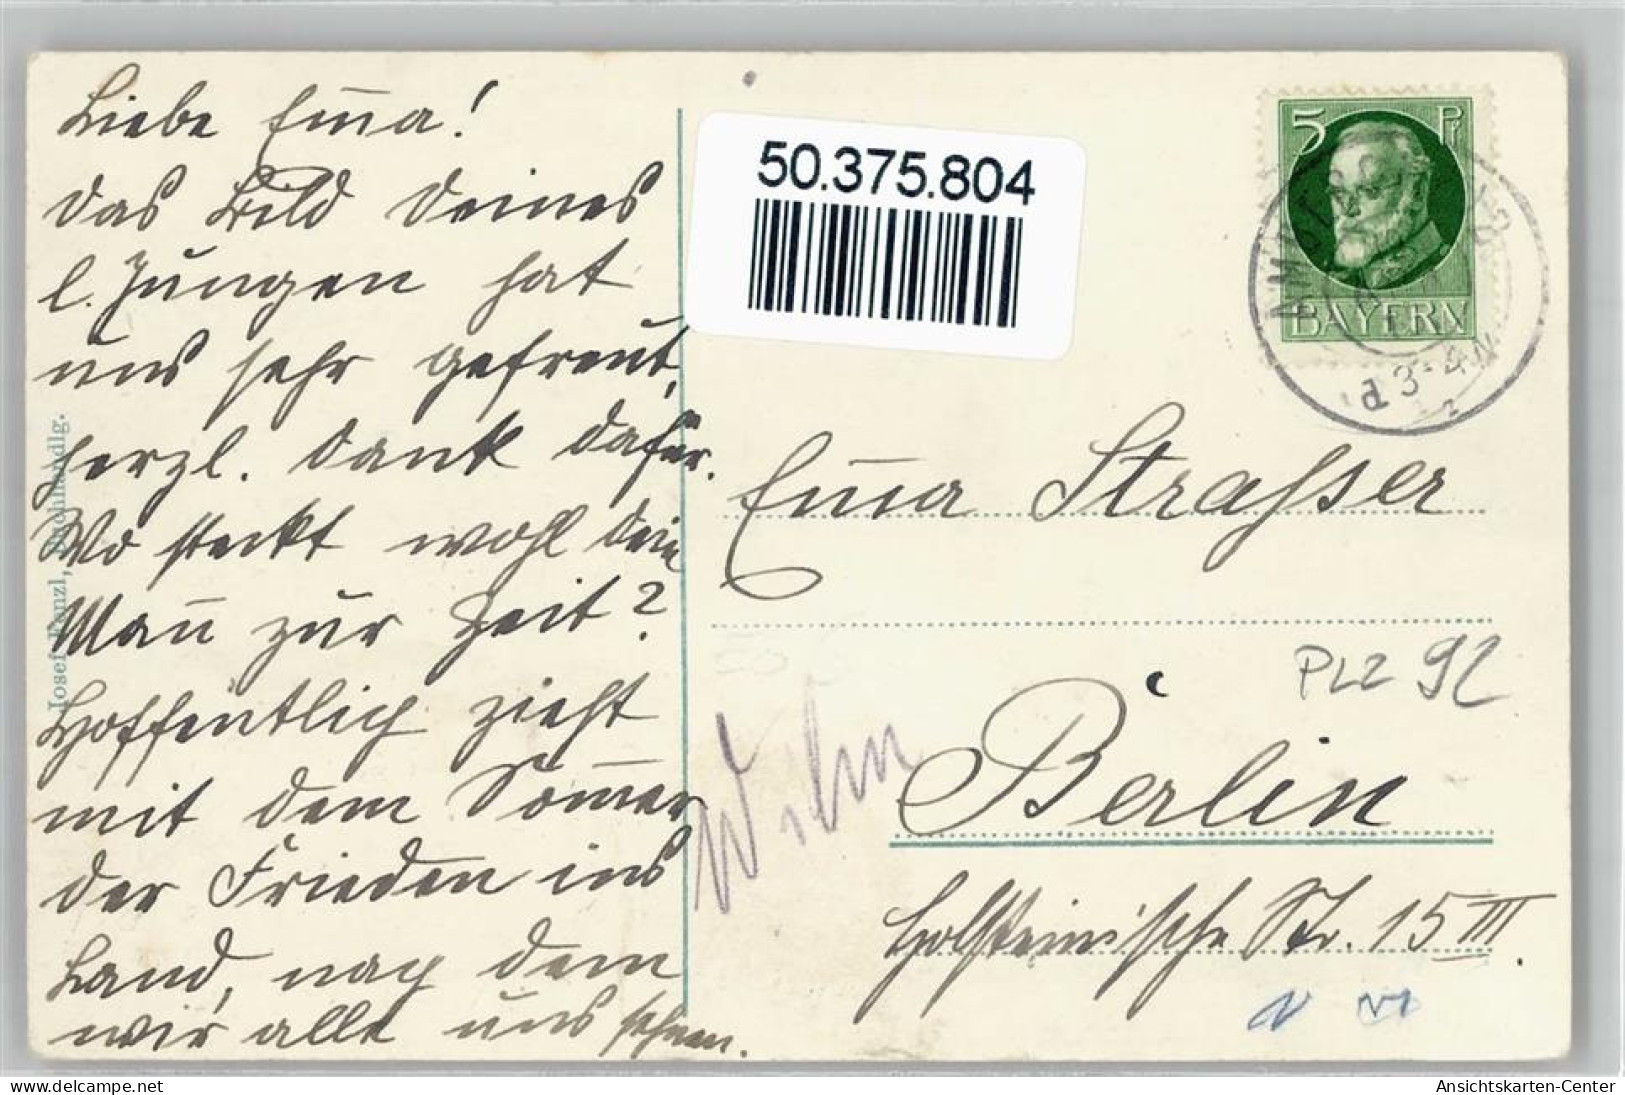 Liebe Em̅a!
Das Bild Deines
l. Jungen hat
uns sehr gefreut,
herzl. Dank dafür.
Wo steckt wohl Dein
Man̅ zur Zeit?
Hoffentlich zieht
mit dem Som̅er
der Frieden ins
Land, nach dem
wir alle uns sehnen.
50.375.804
5 Pf
BAYERN
3-4 N
Em̅a Strasser
PLZ 92
Berlin
Holsteinische Str. 15 III.
Buchhandlg.
Ansichtskarten-Center